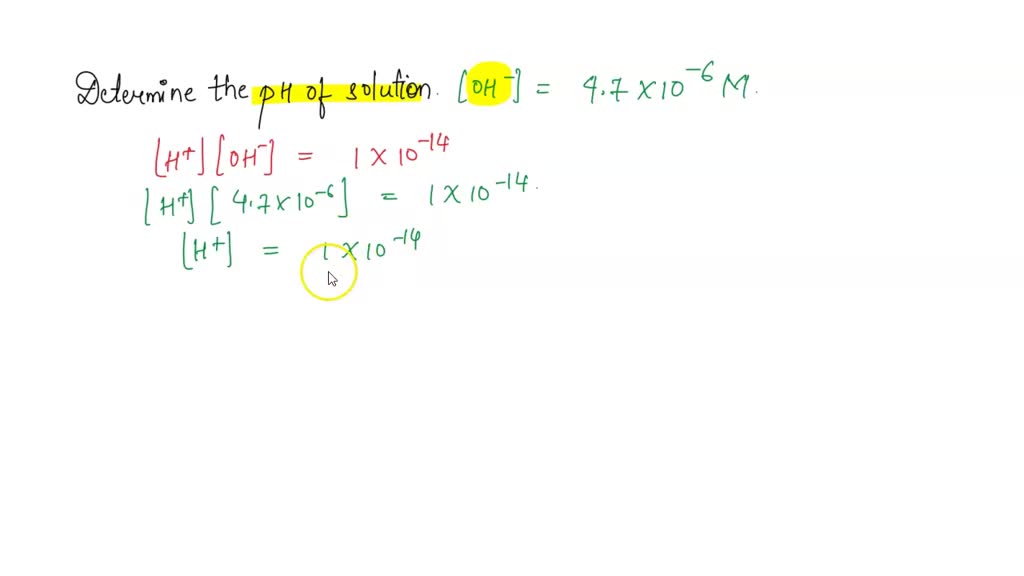 Determine the pH of solution. [OH⁻] = 4.7 × 10⁻⁶ M.
[H⁺] [OH⁻] = 1 × 10⁻¹⁴
[H⁺] [4.7 × 10⁻⁶] = 1 × 10⁻¹⁴.
[H⁺] = 1 × 10⁻¹⁴